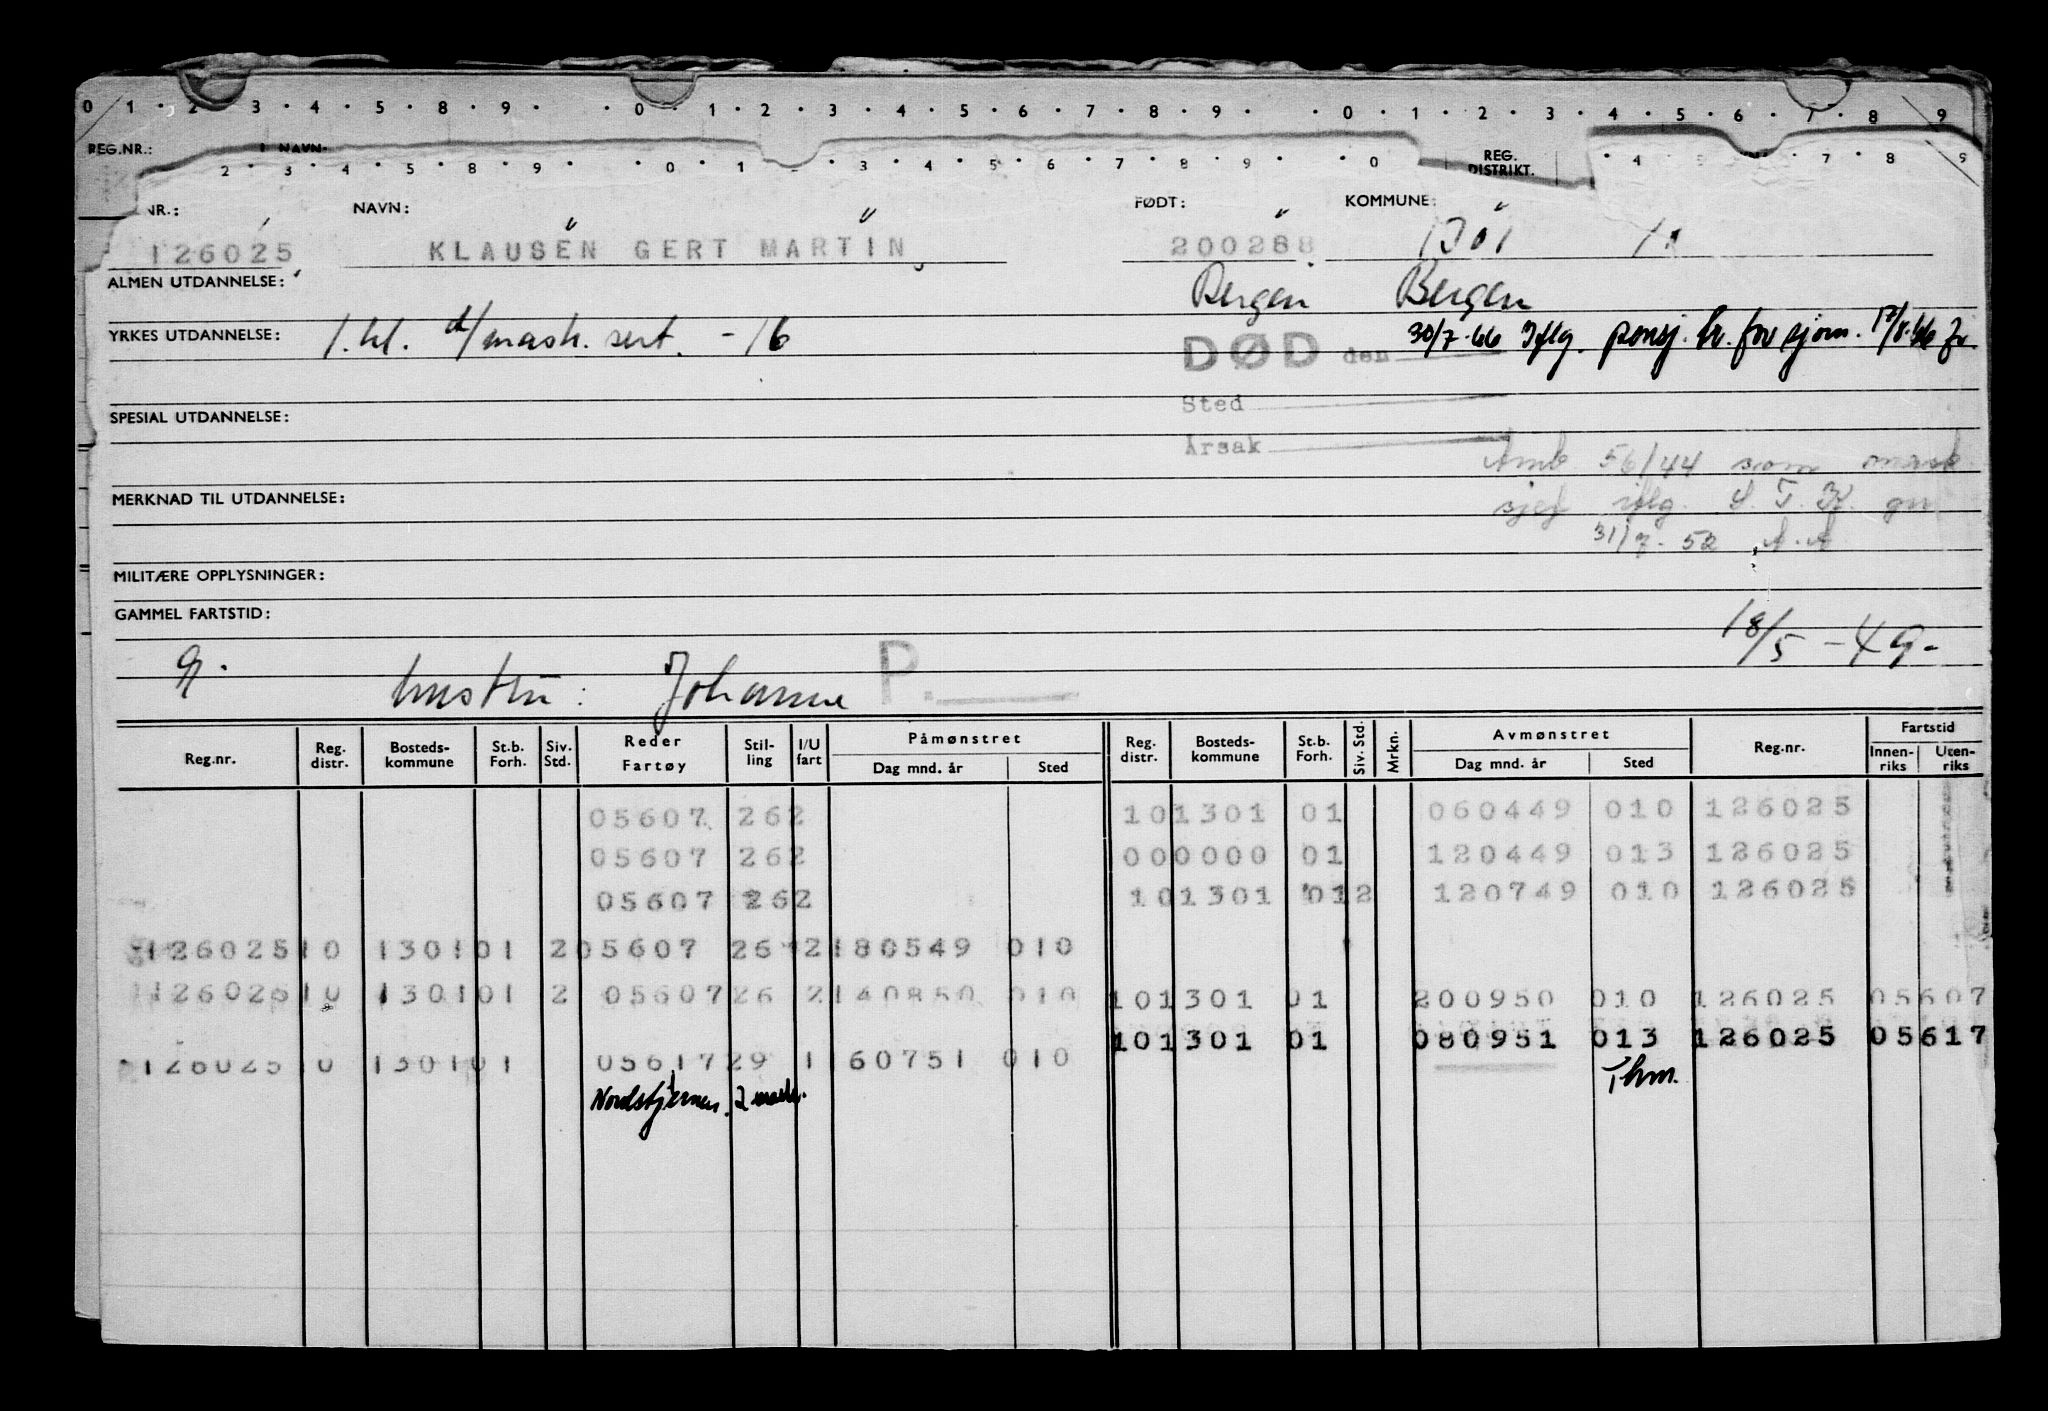 0 1 · 2 · 3 · 4 · 5 · 8 · 9 · · 0 · 1 · 2 · 3 · 4 · 5 · 6 · 7 · 8 · 9 · · 0 · 1 · 2 · 3 · 4 · 5 · 6 · 7 · 8 · 9
REG.NR.: NAVN· REG. DISTRIKT.
2 · 3 · 4 · 5 · 8 · 9 · · 0 · 1 · 3 · 4 · 5 · 6 · 7 · 8 · 9 · · 0 · 4 · 5 · 7 · 8 · 9
NR.: NAVN: FØDT: KOMMUNE:
126025 KLAUSEN GERT MARTIN 200288 1301
ALMEN UTDANNELSE: Bergen Bergen
YRKES UTDANNELSE: 1. kl. d/mask. sert. - 16
DØD den 30/7.66 Iflg. pensj. tr. for sjøm. 17/8.66
Sted
SPESIAL UTDANNELSE:
Årsak
Amb 56/44 som mask
MERKNAD TIL UTDANNELSE: sjef iflg. S.T.K. gn
31/7.52 A.A
MILITÆRE OPPLYSNINGER:
GAMMEL FARTSTID: 18/5 - 49.
g. hustru: Johanne P.
Reg.nr. Reg. distr. Bosteds- kommune St.b. Forh. Siv. Std. Reder Fartøy Stil- ling I/U fart Påmønstret Dag mnd. år Sted Reg. distr. Bosteds- kommune St.b. Forh. Siv. Std. Mrkn. Avmønstret Dag mnd. år Sted Reg.nr. Fartstid Innen- riks Uten- riks
05607 262 101301 01 060449 010 126025
05607 262 000000 01 120449 013 126025
05607 262 101301 012 120749 010 126025
12602510 130101 205607 26 2180549 010
12602510 130101 2 0560726 2140850 010 101301 01 200950 010 126025 05607
101301 01 080951 013 126025 05617
12602510 130101 0561729 1160751 010 Thm.
Nordstjernen. 2 mask.